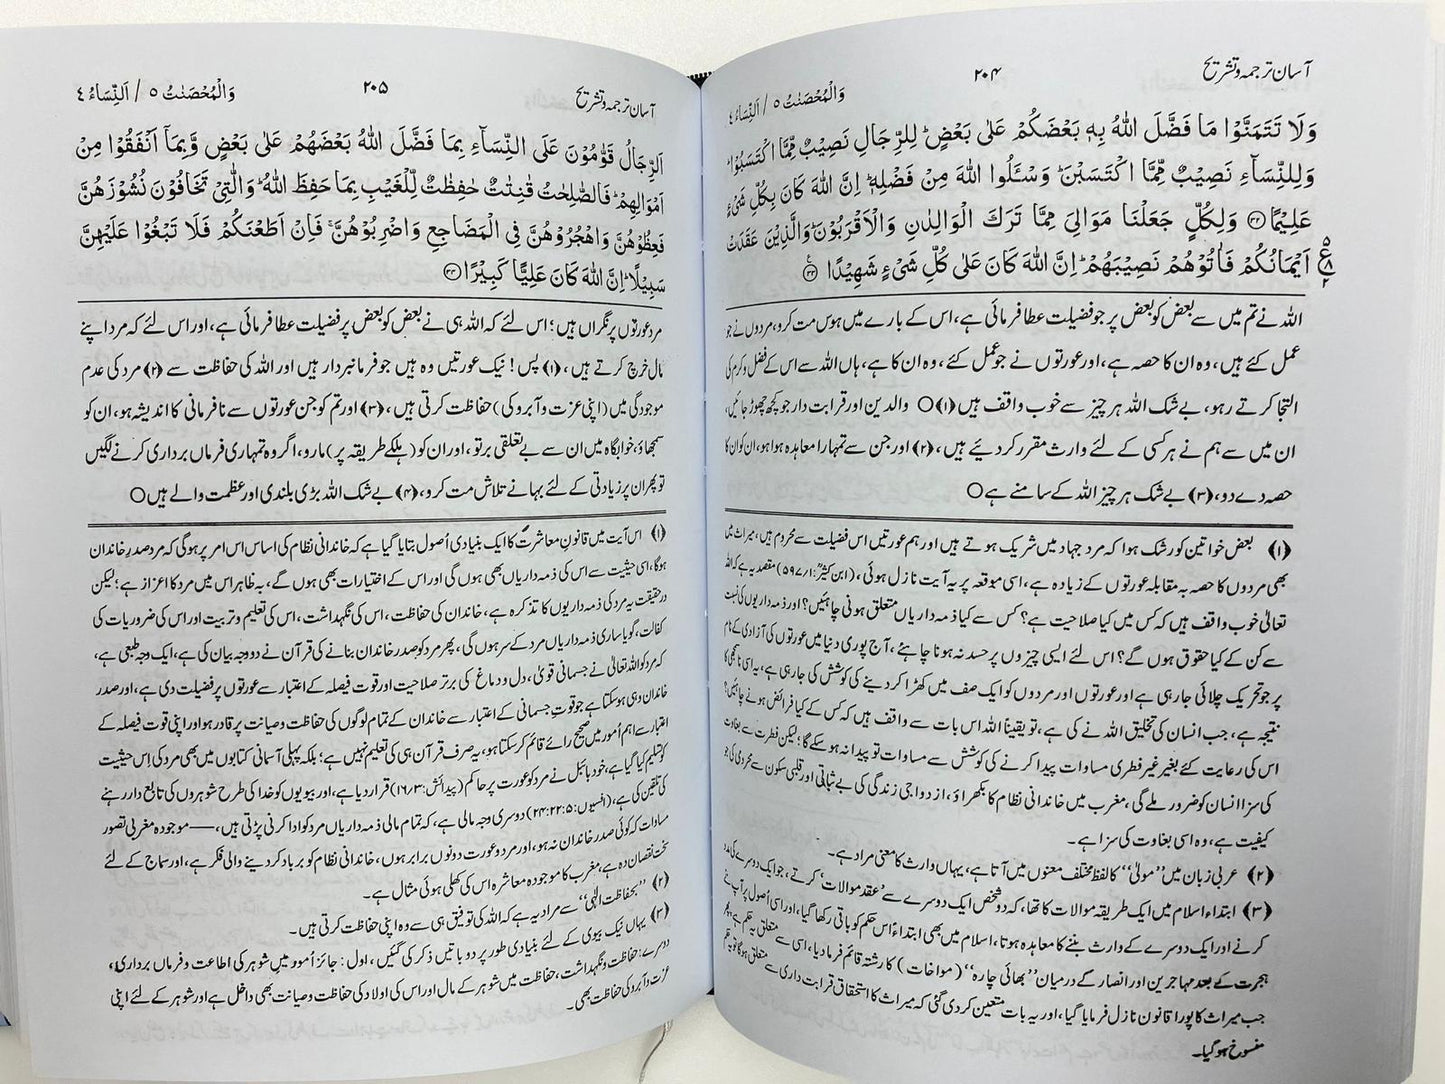 آسان ترجمہ و تشریح
۲۰۴
وَالْمُحْصَنٰتُ ۵ / اَلنِّسَاءُ ٤
وَلَا تَتَمَنَّوْا مَا فَضَّلَ اللّٰهُ بِهٖ بَعْضَكُمْ عَلٰى بَعْضٍ ؕ لِلرِّجَالِ نَصِيْبٌ مِّمَّا اكْتَسَبُوْا ؕ
وَلِلنِّسَآءِ نَصِيْبٌ مِّمَّا اكْتَسَبْنَ ؕ وَسْـَٔلُوا اللّٰهَ مِنْ فَضْلِهٖ ؕ اِنَّ اللّٰهَ كَانَ بِكُلِّ شَيْءٍ
عَلِيْمًا ۝۳۲ وَلِكُلٍّ جَعَلْنَا مَوَالِيَ مِمَّا تَرَكَ الْوَالِدٰنِ وَالْاَقْرَبُوْنَ ؕ وَالَّذِيْنَ عَقَدَتْ
اَيْمَانُكُمْ فَاٰتُوْهُمْ نَصِيْبَهُمْ ؕ اِنَّ اللّٰهَ كَانَ عَلٰى كُلِّ شَيْءٍ شَهِيْدًا ۝۳۳
اللہ نے تم میں سے بعض کو بعض پر جو فضیلت عطا فرمائی ہے، اس کے بارے میں ہوس مت کرو، مردوں نے جو
عمل کئے ہیں، وہ ان کا حصہ ہے، اور عورتوں نے جو عمل کئے، وہ ان کا ہے، ہاں اللہ سے اس کے فضل و کرم کی
التجا کرتے رہو، بے شک اللہ ہر چیز سے خوب واقف ہیں (۱) ○ والدین اور قرابت دار جو کچھ چھوڑ جائیں،
ان میں سے ہم نے ہر کسی کے لئے وارث مقرر کر دیئے ہیں، (۲) اور جن سے تمہارا معاہدہ ہوا ہو، ان کو ان کا
حصہ دے دو، (۳) بے شک ہر چیز اللہ کے سامنے ہے ○
(۱) بعض خواتین کو رشک ہوا کہ مرد جہاد میں شریک ہوتے ہیں اور ہم عورتیں اس فضیلت سے محروم ہیں، میراث میں
بھی مردوں کا حصہ بہ مقابلہ عورتوں کے زیادہ ہے، اسی موقعہ پر یہ آیت نازل ہوئی، (ابن کثیرؒ: ۱/۵۹۷) مقصد یہ ہے کہ اللہ
تعالیٰ خوب واقف ہیں کہ کس میں کیا صلاحیت ہے؟ کس سے کیا ذمہ داریاں متعلق ہونی چاہئیں؟ اور ذمہ داریوں کی نسبت
سے کن کے کیا حقوق ہوں گے؟ اس لئے ایسی چیزوں پر حسد نہ ہونا چاہئے، آج پوری دنیا میں عورتوں کی آزادی کے نام
پر جو تحریک چلائی جا رہی ہے اور عورتوں اور مردوں کو ایک صف میں کھڑا کر دینے کی کوشش کی جا رہی ہے، یہ اسی ناسمجھی کا
نتیجہ ہے، جب انسان کی تخلیق اللہ نے کی ہے، تو یقیناً اللہ اس بات سے واقف ہیں کہ کس کے کیا فرائض ہونے چاہئیں؟
اس کی رعایت کئے بغیر غیر فطری مساوات پیدا کرنے کی کوشش سے مساوات تو پیدا نہ ہو سکے گا؛ لیکن فطرت سے بغاوت
کی سزا انسان کو ضرور ملے گی، مغرب میں خاندانی نظام کا بکھراؤ، ازدواجی زندگی کی بے ثباتی اور قلبی سکون سے محرومی کی جو
کیفیت ہے، وہ اسی بغاوت کی سزا ہے۔
(۲) عربی زبان میں ”مولیٰ“ کا لفظ مختلف معنوں میں آتا ہے، یہاں وارث کا معنی مراد ہے۔
(۳) ابتداء اسلام میں ایک طریقہ موالات کا تھا، کہ دو شخص ایک دوسرے سے ’عقد موالات‘ کرتے، جو ایک دوسرے کی مدد
کرنے اور ایک دوسرے کے وارث بننے کا معاہدہ ہوتا، اسلام میں بھی ابتداءً اس حکم کو باقی رکھا گیا، اور اسی اُصول پر آپ نے
ہجرت کے بعد مہاجرین اور انصار کے درمیان ”بھائی چارہ“ (مواخات) کا رشتہ قائم فرما دیا، اسی سے متعلق یہ حکم ہے، پھر
جب میراث کا پورا قانون نازل فرمایا گیا، اور یہ بات متعین کر دی گئی کہ میراث کا استحقاق قرابت داری سے متعلق ہوگا تو یہ حکم
منسوخ ہو گیا۔
آسان ترجمہ و تشریح
۲۰۵
وَالْمُحْصَنٰتُ ۵ / اَلنِّسَاءُ ٤
اَلرِّجَالُ قَوّٰمُوْنَ عَلَى النِّسَآءِ بِمَا فَضَّلَ اللّٰهُ بَعْضَهُمْ عَلٰى بَعْضٍ وَّبِمَآ اَنْفَقُوْا مِنْ
اَمْوَالِهِمْ ؕ فَالصّٰلِحٰتُ قٰنِتٰتٌ حٰفِظٰتٌ لِّلْغَيْبِ بِمَا حَفِظَ اللّٰهُ ؕ وَالّٰتِيْ تَخَافُوْنَ نُشُوْزَهُنَّ
فَعِظُوْهُنَّ وَاهْجُرُوْهُنَّ فِي الْمَضَاجِعِ وَاضْرِبُوْهُنَّ ۚ فَاِنْ اَطَعْنَكُمْ فَلَا تَبْغُوْا عَلَيْهِنَّ
سَبِيْلًا ؕ اِنَّ اللّٰهَ كَانَ عَلِيًّا كَبِيْرًا ۝۳۴
مرد عورتوں پر نگراں ہیں؛ اس لئے کہ اللہ ہی نے بعض کو بعض پر فضیلت عطا فرمائی ہے، اور اس لئے کہ مرد اپنے
مال خرچ کرتے ہیں، (۱) پس! نیک عورتیں وہ ہیں جو فرمانبردار ہیں اور اللہ کی حفاظت سے (۲) مرد کی عدم
موجودگی میں (اپنی عزت و آبرو کی) حفاظت کرتی ہیں، (۳) اور تم کو جن عورتوں سے نافرمانی کا اندیشہ ہو، ان کو
سمجھاؤ، خوابگاہ میں ان سے بے تعلقی برتو، اور ان کو (ہلکے طریقہ پر) مارو، اگر وہ تمہاری فرماں برداری کرنے لگیں
تو پھر ان پر زیادتی کے لئے بہانے تلاش مت کرو، (۴) بے شک اللہ بڑی بلندی اور عظمت والے ہیں ○
(۱) اس آیت میں قانونِ معاشرت کا ایک بنیادی اُصول بتایا گیا ہے کہ خاندانی نظام کی اساس اس امر پر ہوگی کہ مرد صدرِ خاندان
ہوگا، اسی حیثیت سے اس کی ذمہ داریاں بھی ہوں گی اور اس کے اختیارات بھی ہوں گے، بہ ظاہر اس میں مرد کا اعزاز ہے؛ لیکن
درحقیقت یہ مرد کی ذمہ داریوں کا تذکرہ ہے، خاندان کی حفاظت، اس کی نگہداشت، اس کی تعلیم و تربیت اور اس کی ضروریات کی
کفالت، گویا ساری ذمہ داریاں مرد کے سر ہوں گی، پھر مرد کو صدر خاندان بنانے کی قرآن نے دو وجہ بیان کی ہے، ایک وجہ طبعی ہے،
کہ مرد کو اللہ تعالیٰ نے جسمانی قویٰ، دل و دماغ کی برتر صلاحیت اور قوت فیصلہ کے اعتبار سے عورتوں پر فضیلت دی ہے، اور صدر
خاندان وہی ہو سکتا ہے جو قوت جسمانی کے اعتبار سے خاندان کے تمام لوگوں کی حفاظت و صیانت پر قادر ہو اور اپنی قوت فیصلہ کے
اعتبار سے اہم اُمور میں صحیح رائے قائم کر سکتا ہو، یہ صرف قرآن ہی کی تعلیم نہیں ہے؛ بلکہ پہلی آسمانی کتابوں میں بھی مرد کی اس حیثیت
کو تسلیم کیا گیا ہے، خود بائبل نے مرد کو عورت پر حاکم (پیدائش: ۳/۱۶) قرار دیا ہے، اور بیویوں کو خدا کی طرح شوہروں کی تابع دار رہنے
کی تلقین کی ہے، (افسیوں: ۵:۲۲، ۲۴) دوسری وجہ مالی ہے، کہ تمام مالی ذمہ داریاں مرد کو ادا کرنی پڑتی ہیں، —— موجودہ مغربی تصور
مساوات کہ کوئی صدر خاندان نہ ہو، اور مرد و عورت دونوں برابر ہوں، خاندانی نظام کو برباد کر دینے والی فکر ہے، اور سماج کے لئے
سخت نقصان دہ ہے، مغرب کا موجودہ معاشرہ اس کی کھلی ہوئی مثال ہے۔
(۲) ”بحفاظت الٰہی“ سے مراد یہ ہے کہ اللہ کی توفیق ہی سے وہ اپنی حفاظت کرتی ہیں۔
(۳) یہاں نیک بیوی کے لئے بنیادی طور پر دو باتیں ذکر کی گئیں، اول: جائز اُمور میں شوہر کی اطاعت و فرماں برداری،
دوسرے: حفاظت و نگہداشت، حفاظت میں شوہر کے مال اور اس کی اولاد کی حفاظت و صیانت بھی داخل ہے اور شوہر کے لئے اپنی
عزت و آبرو کی حفاظت بھی۔